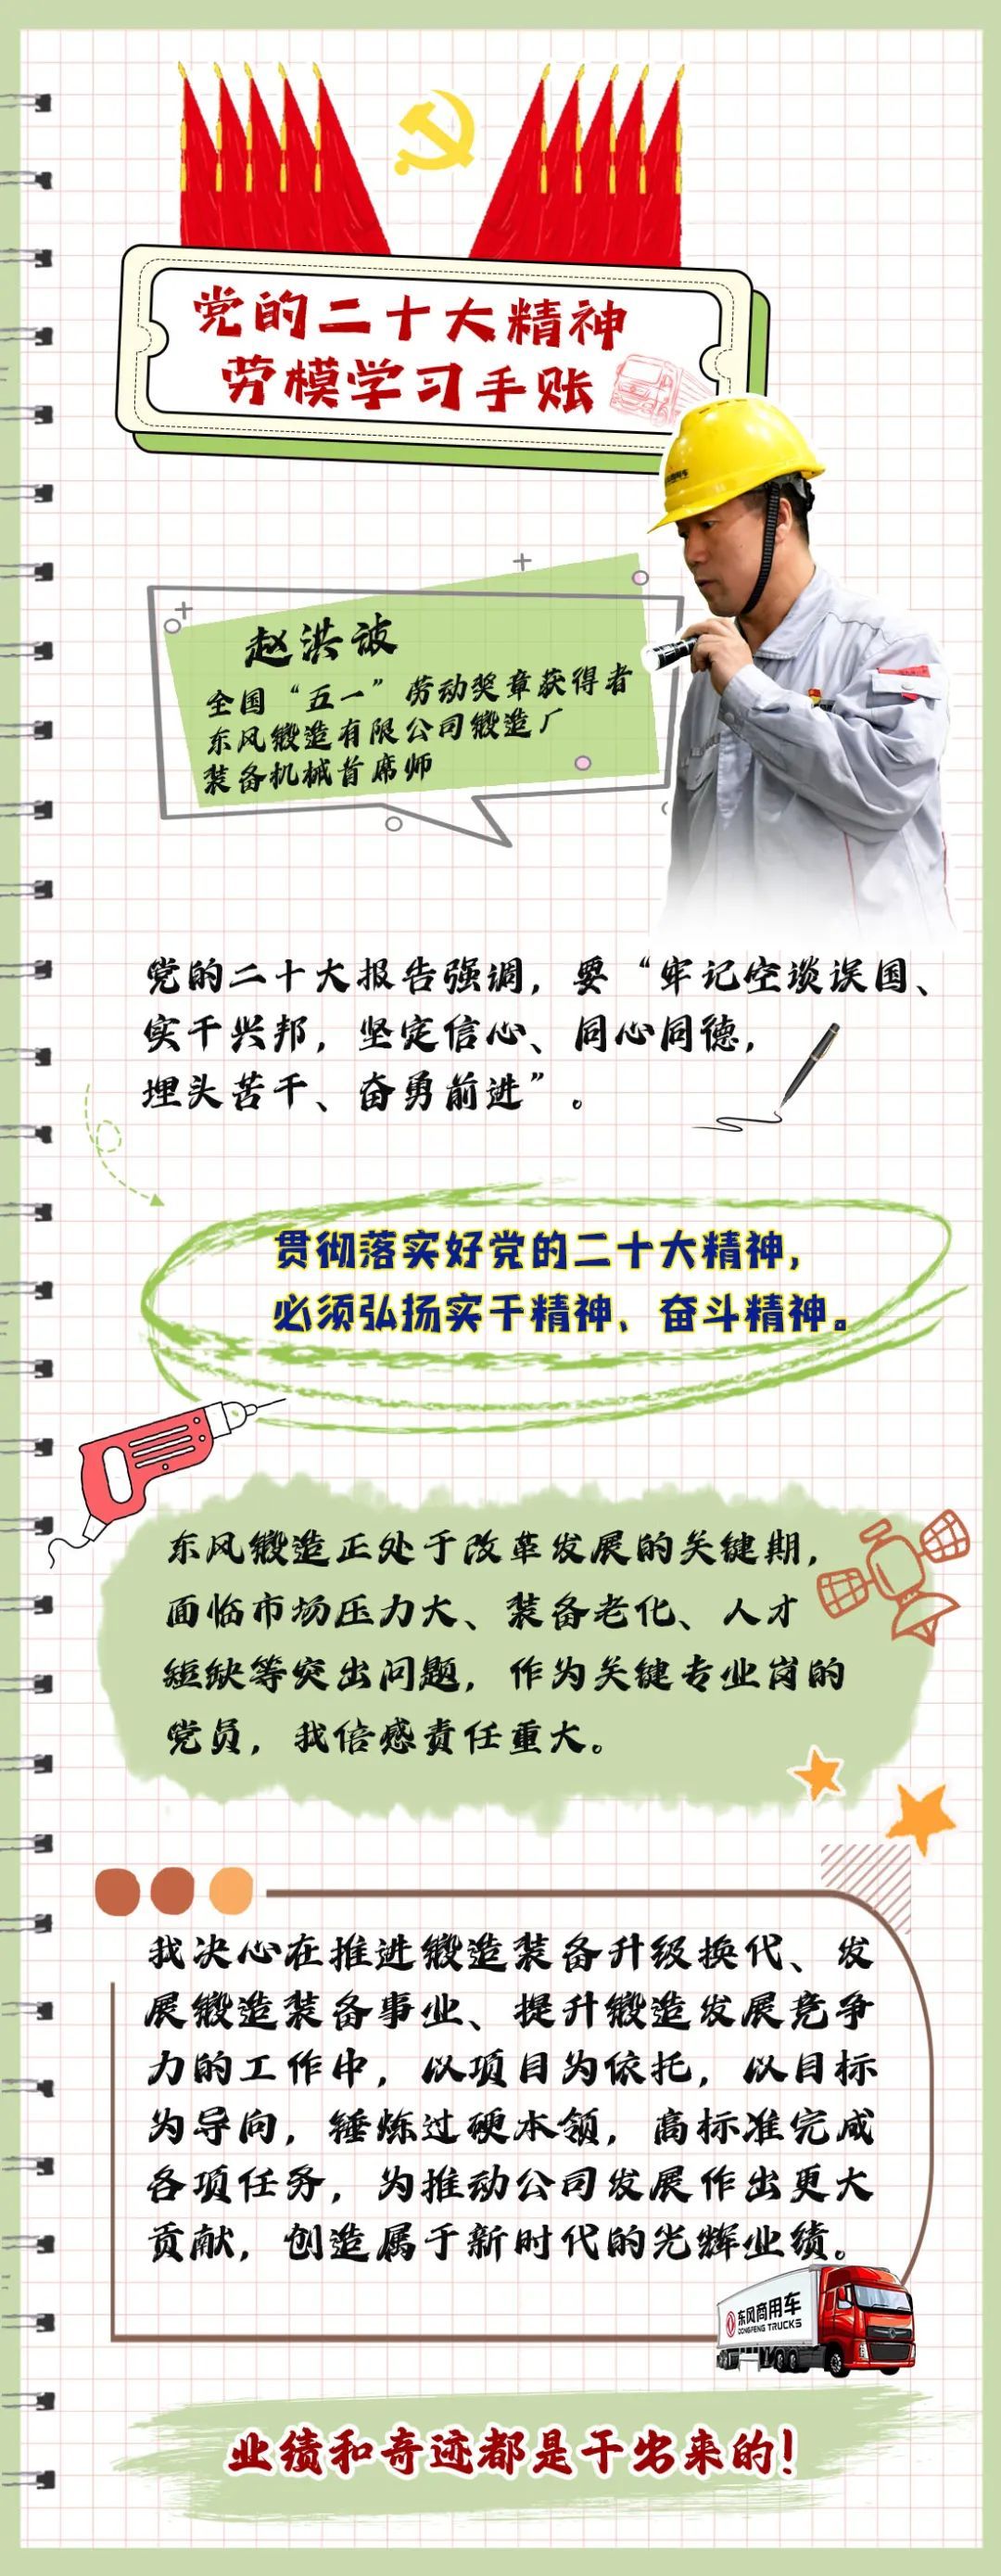 党的二十大精神
劳模学习手账
赵洪波
全国“五一”劳动奖章获得者
东风锻造有限公司锻造厂
装备机械首席师
党的二十大报告强调，要“牢记空谈误国、
实干兴邦，坚定信心、同心同德，
埋头苦干、奋勇前进”。
贯彻落实好党的二十大精神，
必须弘扬实干精神、奋斗精神。
东风锻造正处于改革发展的关键期，
面临市场压力大、装备老化、人才
短缺等突出问题，作为关键专业岗的
党员，我倍感责任重大。
我决心在推进锻造装备升级换代、发
展锻造装备事业、提升锻造发展竞争
力的工作中，以项目为依托，以目标
为导向，锤炼过硬本领，高标准完成
各项任务，为推动公司发展作出更大
贡献，创造属于新时代的光辉业绩。
东风商用车
DONGFENG TRUCKS
业绩和奇迹都是干出来的！